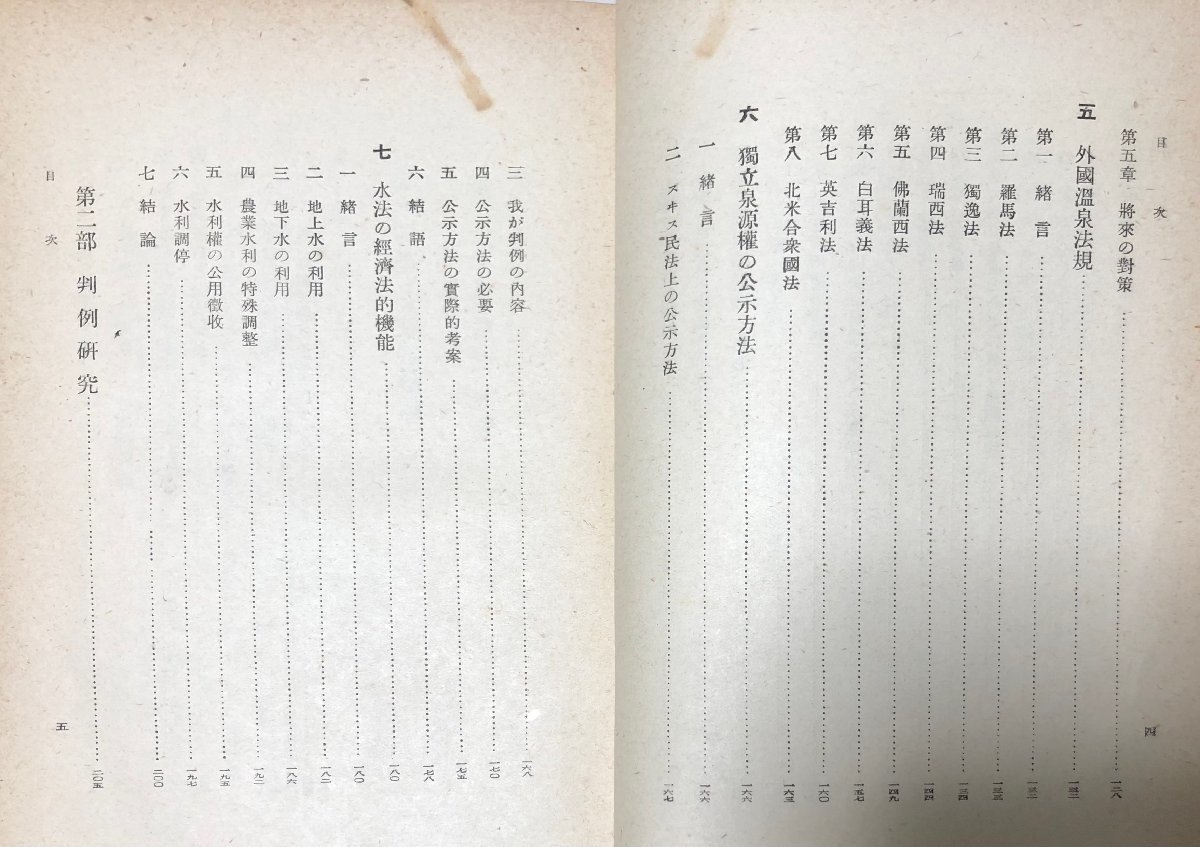 目次
第五章 將來の對策……一二八
五 外國溫泉法規……一三二
第一 緒言……一三二
第二 羅馬法……一三三
第三 獨逸法……一三四
第四 瑞西法……一四四
第五 佛蘭西法……一四九
第六 白耳義法……一五七
第七 英吉利法……一六〇
第八 北米合衆國法……一六三
六 獨立泉源權の公示方法……一六六
一 緒言……一六六
二 スヰス民法上の公示方法……一六七
四
三 我が判例の內容……一六八
四 公示方法の必要……一七〇
五 公示方法の實際的考案……一七五
六 結語……一七八
七 水法の經濟法的機能……一八〇
一 緒言……一八〇
二 地上水の利用……一八二
三 地下水の利用……一八六
四 農業水利の特殊調整……一九二
五 水利權の公用徵收……一九五
六 水利調停……一九七
七 結論……二〇〇
第二部 判例硏究……二〇五
目次
五